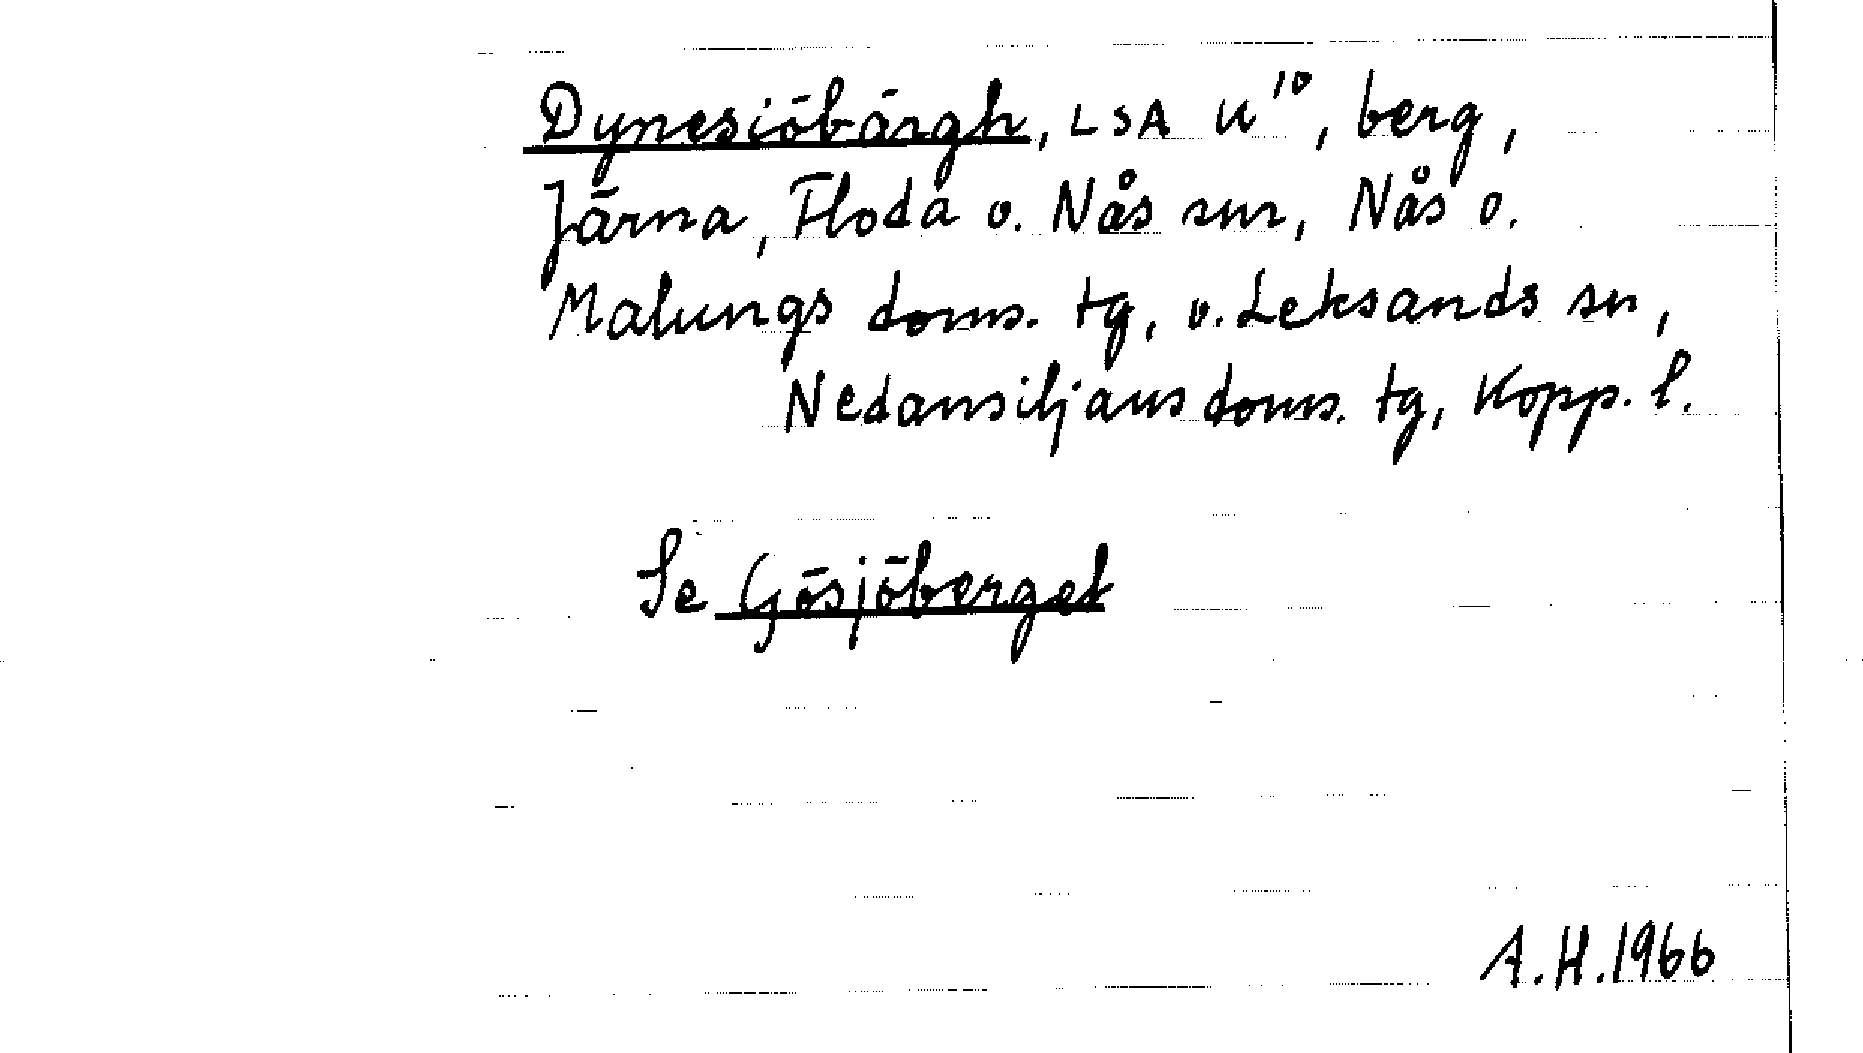 Dynesiöbärgh, LSA U¹⁰, berg,
Järna, Floda o. Nås snr, Nås o.
Malungs doms. tg, o. Leksands sn,
Nedansiljans doms. tg, Kopp. l.
Se Gösjöberget
A.H. 1966